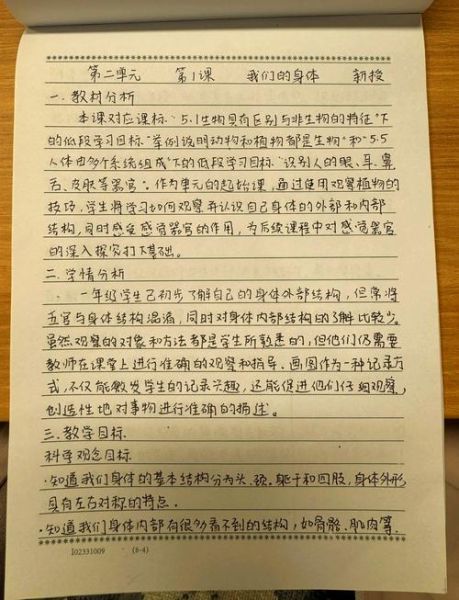 第二单元 第1课 我们的身体 新授
一.教材分析
本课对应课标:"5.1生物具有区别与非生物的特征"下
的低段学习目标"举例说明动物和植物都是生物"和"5.5
人体由多个系统组成"下的低段学习目标"识别人的眼、耳、鼻
舌、皮肤等器官"。作为单元的起始课,通过使用观察植物的
技巧,学生将学习如何观察并认识自己身体的外部和内部
结构,同时感受感觉器官的作用,为后续课程中对感觉器官
的深入探究打下基础。
二.学情分析
一年级学生已初步了解自己的身体外部结构,但常将
五官与身体结构混淆,同时对身体内部结构的了解比较少。
虽然观察的对象和方法都是学生所熟悉的,但他们仍需要
教师在课堂上进行准确的观察和指导、画图作为一种记录方
式,不仅能激发学生的记录兴趣,还能促进他们仔细观察,
创造性地对事物进行准确的描述。
三.教学目标
科学观念目标
·知道我们身体的基本结构分为头、颈、躯干和四肢,身体外形
具有左右对称的特点.
·知道我们身体内部有很多看不到的结构,如骨骼、肌肉等.
102331009 (6-4)